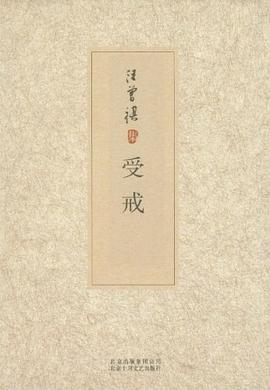 汪曾祺
受戒
北京出版集团公司
北京十月文艺出版社